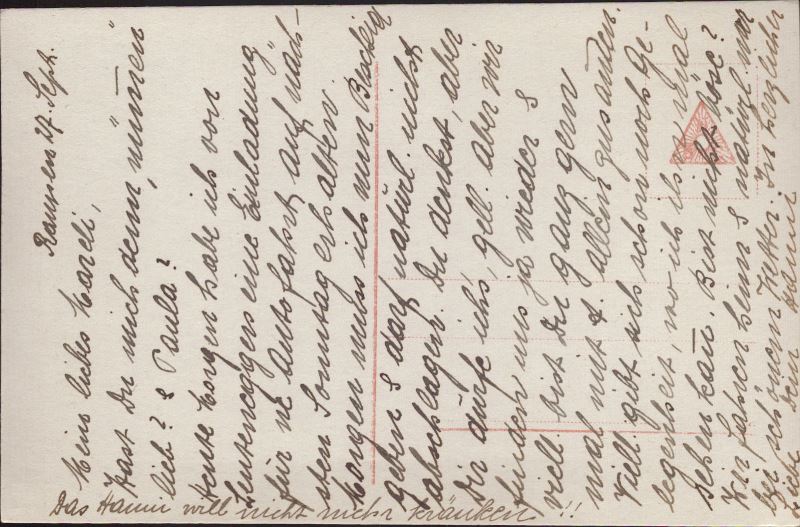 Ramsen 27. Sept.
Mein liebes Mareli,
Hast Du mich denn „nümen"
lieb? & Paula?
Heute Morgen habe ich von
Leuteneggers eine „Einladung"
für ne Autofahrt auf näch-
sten Sonntag erhalten.
Morgen muss ich nun Bescheid
geben & darf natürl. nicht
abschlagen. Du denkst, aber
Dir dürfe ichs', gell. aber wir
finden uns ja wieder &
viell. bist Du ganz gern
mal mit allein zusammen.
Viell. gibt sich schon noch Ge-
legenheit, wo ich ihn mal
sehen kañ. Bist nicht böse?
Wir fahren heim & natürl. nur
bei schönem Wetter. In herzlicher
Liebe Dein Hanni
Das Hanni will nicht mehr kränken!!